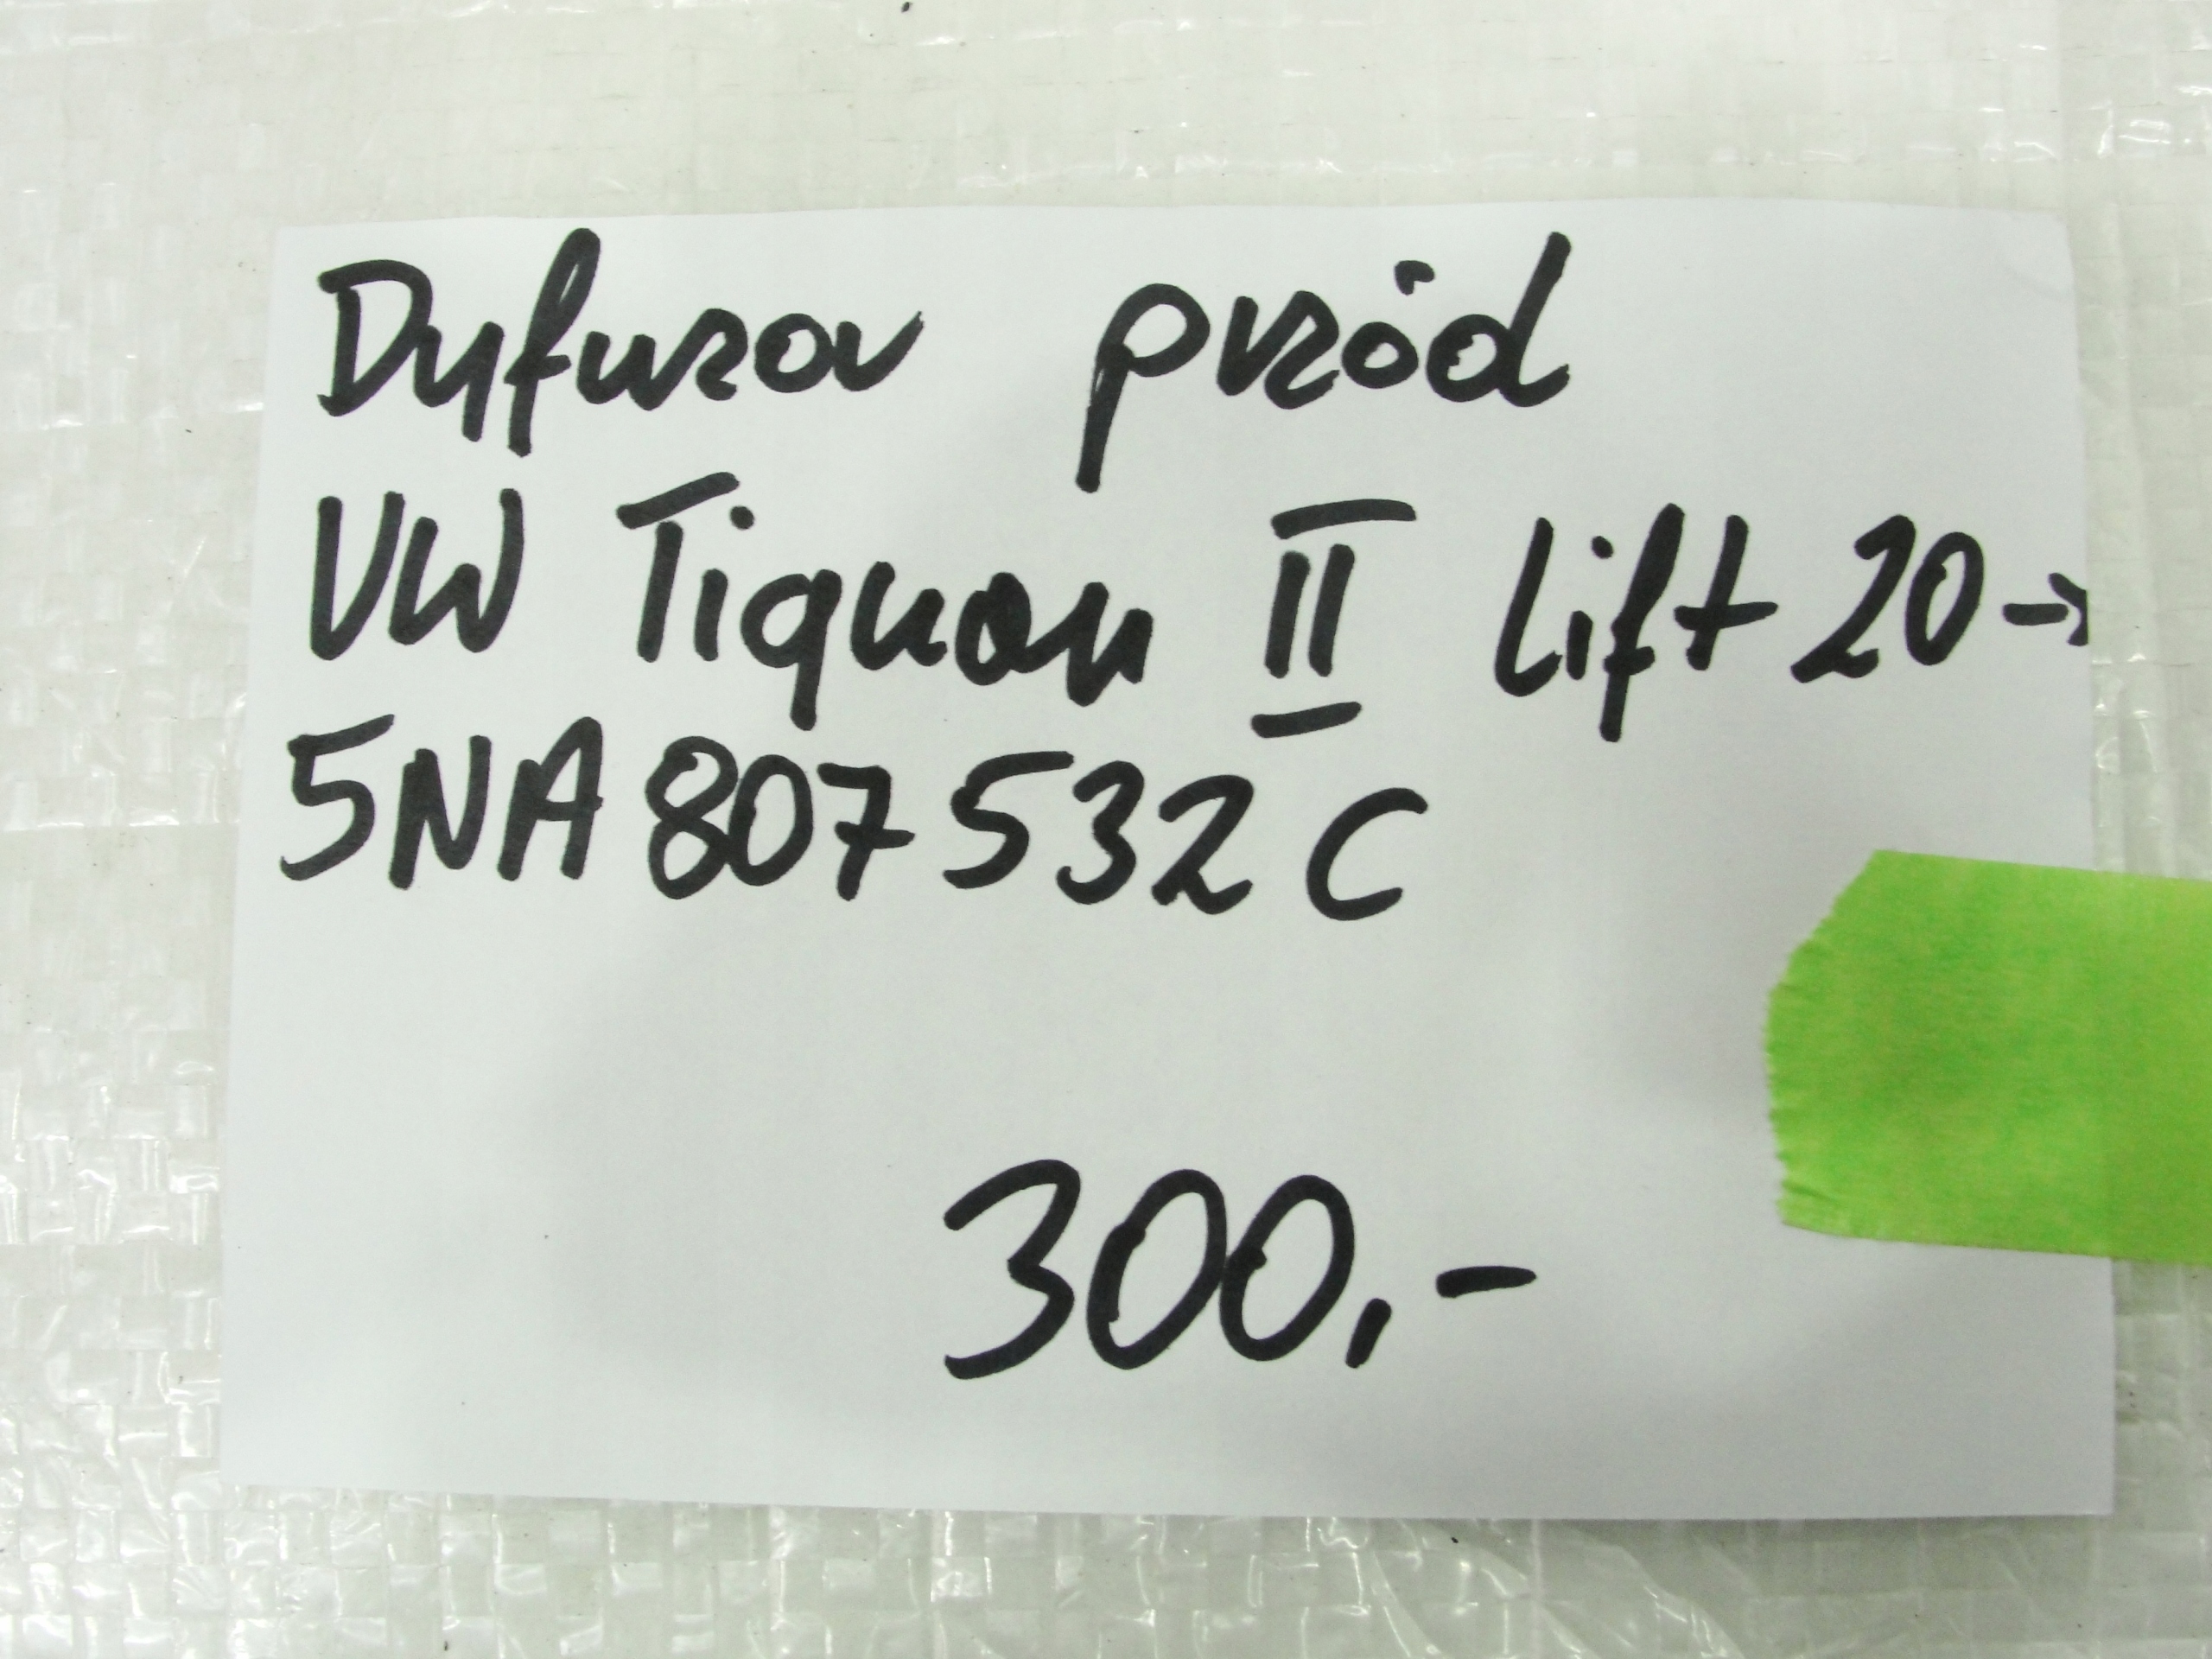 Dyfuzor przód
VW Tiguan II lift 20→
5NA 807 532 C
300,-